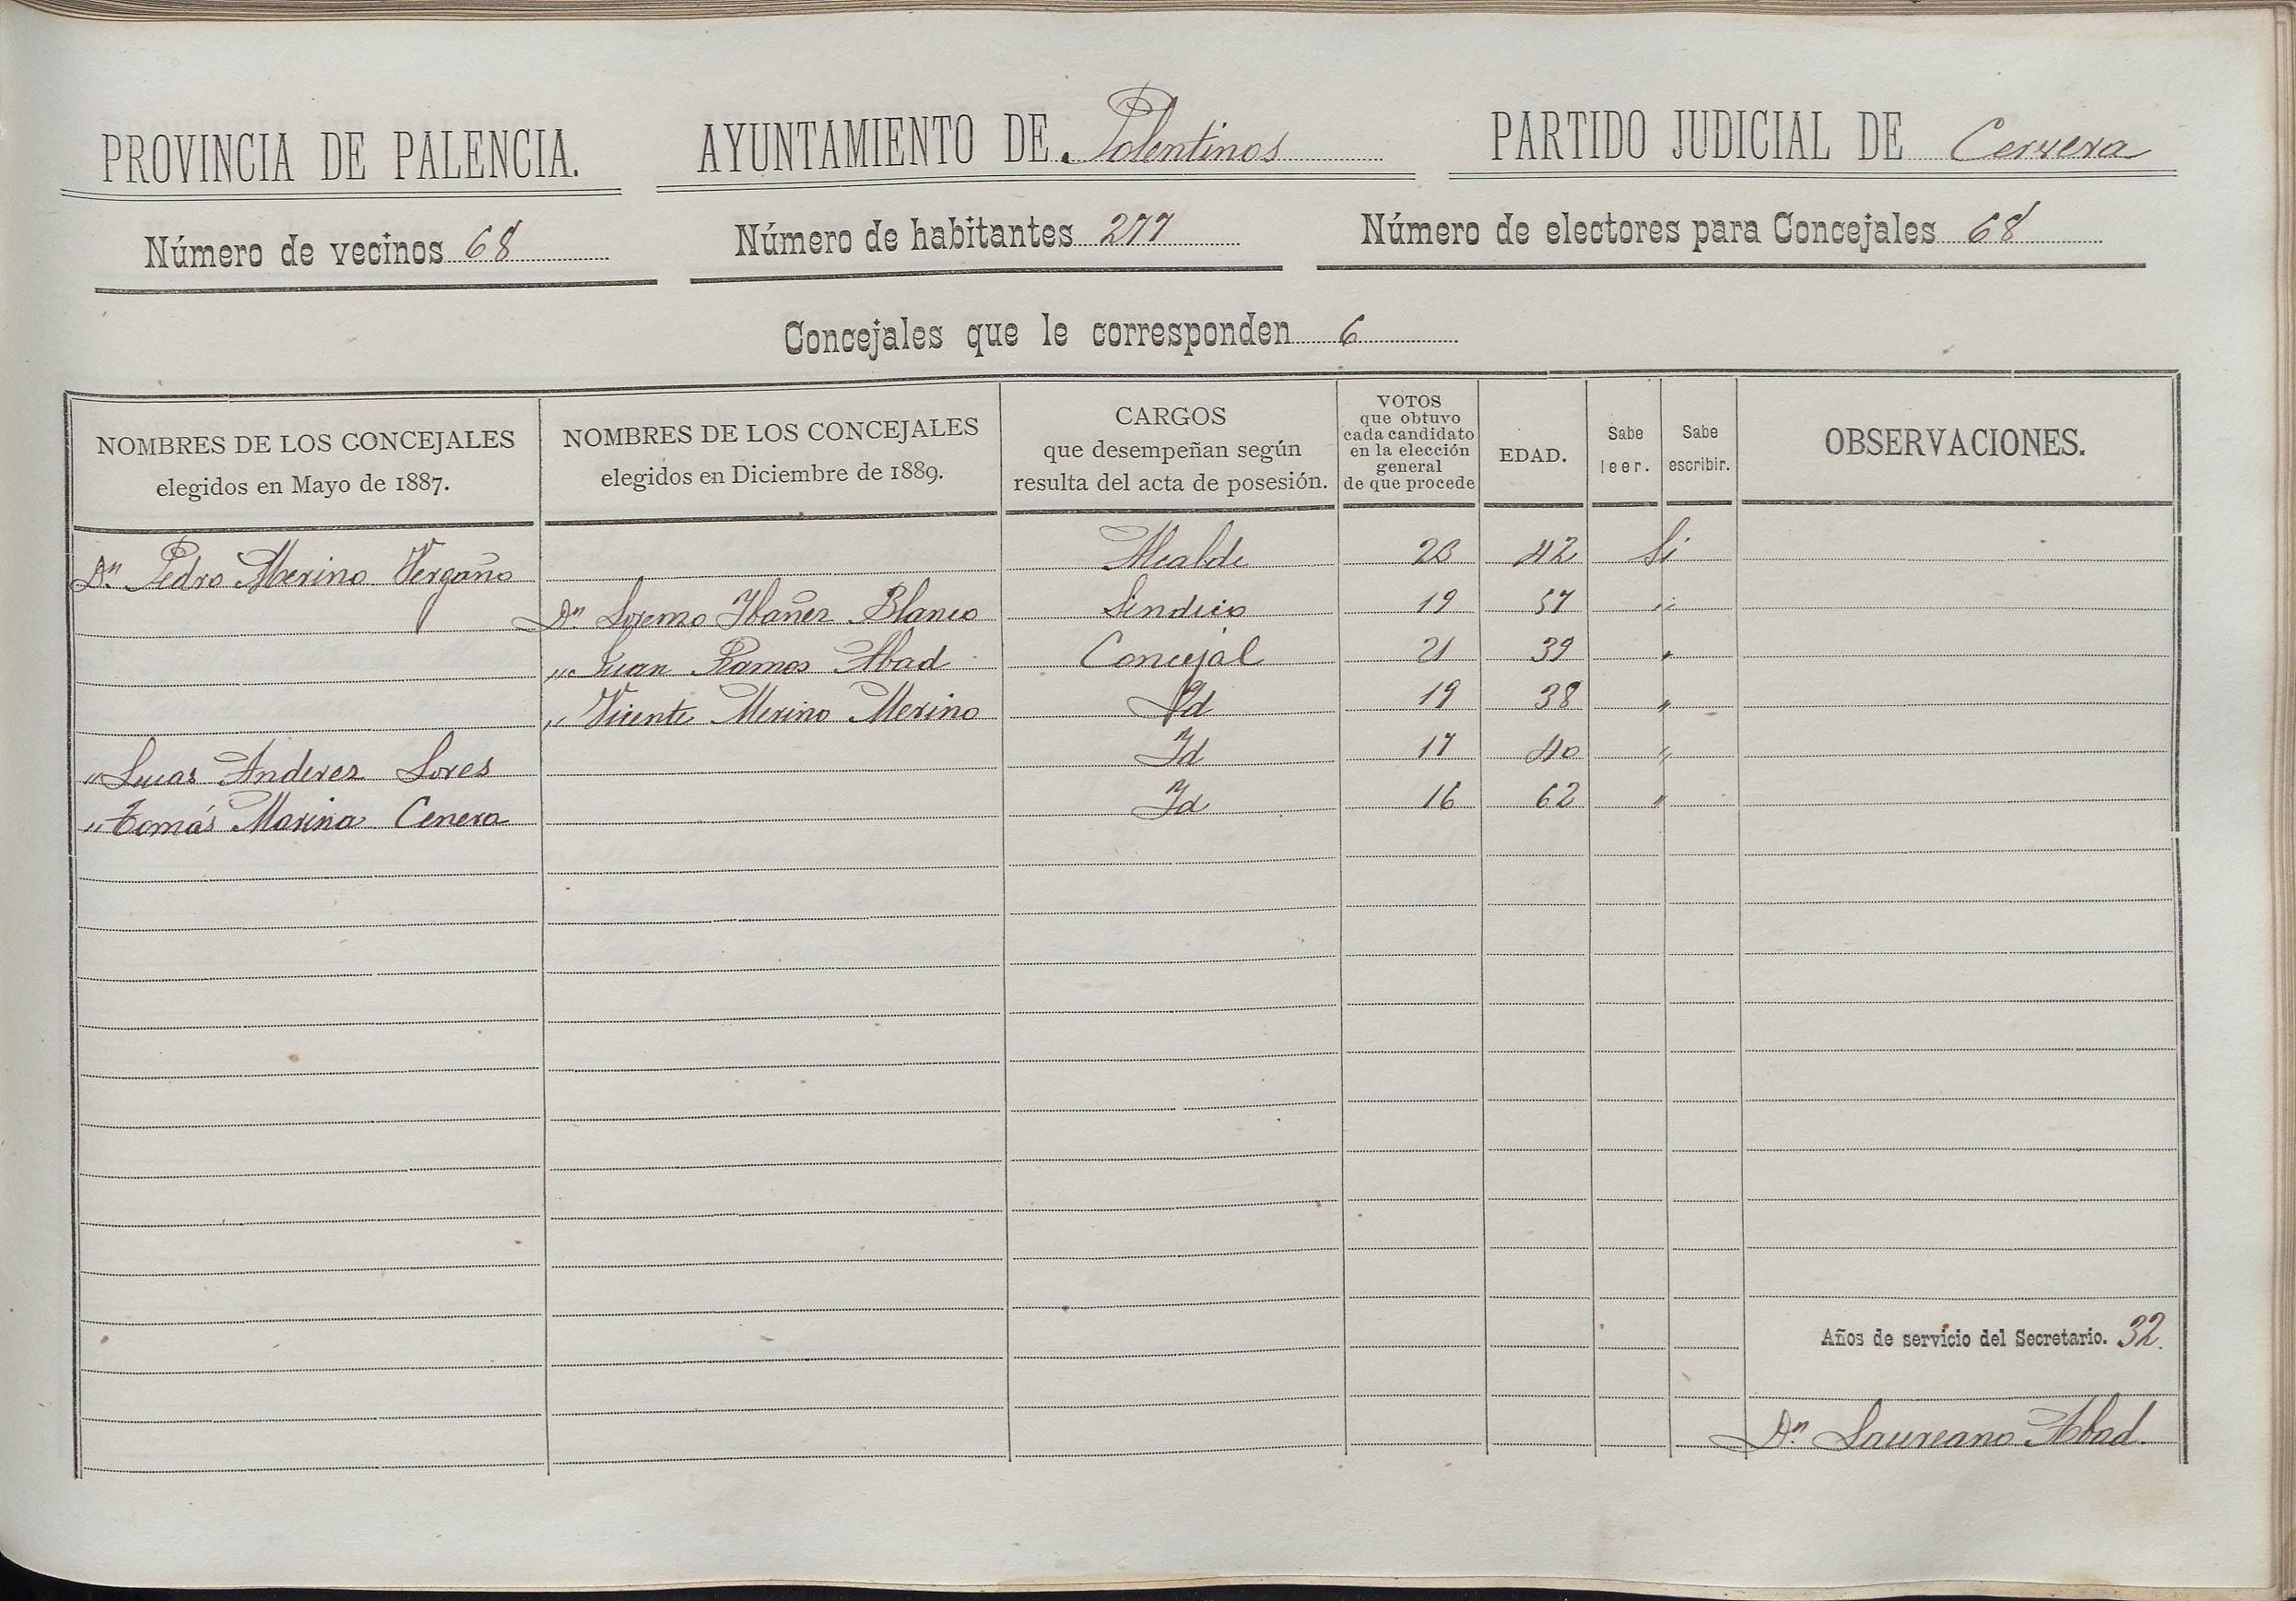 PROVINCIA DE PALENCIA. AYUNTAMIENTO DE Polentinos PARTIDO JUDICIAL DE Cervera
Número de vecinos 68 Número de habitantes 277 Número de electores para Concejales 68
Concejales que le corresponden 6
NOMBRES DE LOS CONCEJALES elegidos en Mayo de 1887.
NOMBRES DE LOS CONCEJALES elegidos en Diciembre de 1889.
CARGOS que desempeñan según resulta del acta de posesión.
VOTOS que obtuvo cada candidato en la elección general de que procede
EDAD.
Sabe leer.
Sabe escribir.
OBSERVACIONES.
Dn Pedro Merino Vergaño Alcalde 23 42 Si
Dn Lorenzo Ibañez Blanco Sindico 19 57 "
" Juan Ramos Abad Concejal 21 39 "
" Vicente Merino Merino Id 19 38 "
" Lucas Anderez Lores Id 17 40 "
" Tomás Marina Cenera Id 16 62 "
Años de servicio del Secretario. 32.
Dn Laureano Abad.